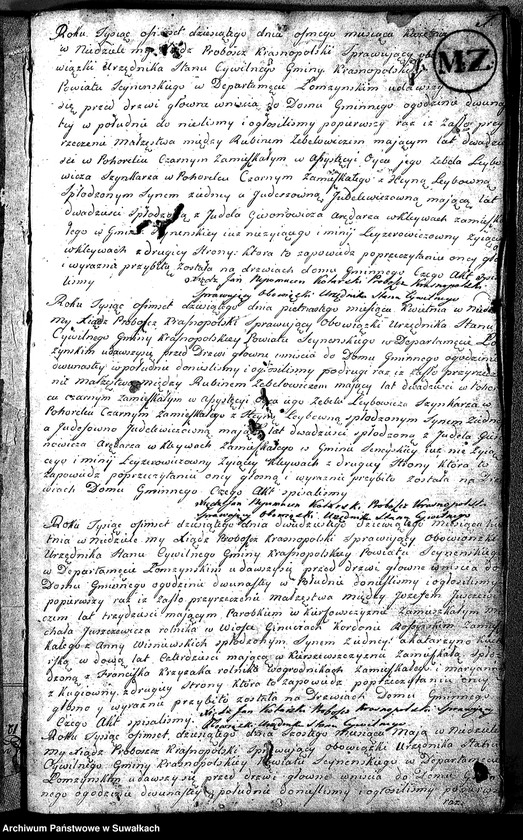 Roku Tysiąc osmset dziesiątego dnia osmego miesiąca
w Niedzielę my Xiądz Proboszcz Krasnopolski Sprawujący
wiązki Urzędnika Stanu Cywilnego Gminy Krasnopolskiey
Powiatu Seynenskiego w Departamęcie Łomzynskim udawszy
się przed drzwi głowne wniscia do Domu Gminnego ogodzinie dwuna
tey w południe donieslismy i ogłosilismy popierwszy raz iz zaszło przy
rzeczenie małzęstwa między Rubinem Zebelowiczem maiącym lat dwadzie
sci w Pohorelcu Czarnym Zamięszkałym w Assystęcyi Oyca jego Zebela Leybo
wicza Szynkarza w Pohorelcu Czarnym Zamięszkałego z Leybowną
spłodzonym Synem Zudney a Judessowną Judelewiczowną maiącą lat
dwadziescia spłodzoną z Judela Arędarza w Klywach zamięszka
łego w Gminie Seynenskiey iuz niezyiącego i miny Leyzerowiczowny zyiącey
w Klywach z drugiey Strony: ktora to zapowiedz poprzeczytaniu oney gło
i wyraznie przybitą została na drzwiach domu Gminnego Czego Akt spisa
lismy
Xiądz Jan Nepomucen Proboszcz Krasnopolski
Sprawujący Obowiązki Urzędnika Stanu Cywilnego
Roku Tysiąc osmset dziesiątego dnia pietnastego miesiąca Kwietnia w Niedzielę
my Xiądz Proboszcz Krasnopolski Sprawujący Obowiązki Urzędnika Stanu
Cywilnego Gminy Krasnopolskiey Powiatu Seynenskiego w Departamęcie Łom
zynskim udawszysię przed Drzwi głowne wniscia do Domu Gminnego ogodzinie
dwunastey w południe donieslismy i ogłosilismy podrugi raz iz zaszło przyrzecze
nie małzęstwa między Rubinem Zebelowiczem maiący lat dwadziescia w Pohorel
cu czarnym zamięszkałym w Assystęcyi Oyca iego Zebela Leybowicza Szynkarza w
Pohorelcu Czarnym Zamięszkałego z Leybowną spłodzonym Synem Zudney
a Judessowną Judelewiczowną maiącą lat dwadziescia spłodzoną z Judela
Arędarza w Klywach Zamięszkałego w Gminie Seneyskiey iuz nie zyią
cego i miny Leyzerowiczowny zyiącey w Klywach z drugiey Strony ktora to
zapowiedz poprzeczytaniu oney głosno i wyraznie przybitą została na Drz
wiach Domu Gminnego Czego Akt spisalismy
Xiądz Jan Nepomucen Proboszcz Krasnopolski
Sprawujący Obowiązki Urzędnika Stanu Cywilnego
Roku Tysiąc osmset dziesiątego dnia dwudziestego dziewiątego miesiąca Kwie
tnia w Niedzielę my Xiądz Proboszcz Krasnopolski Sprawujący obowiązki
Urzędnika Stanu Cywilnego Gminy Krasnopolskiey Powiatu Seynenskiego
w Departamęcie Łomzynskim udawszysię przed drzwi głowne wniscia do
Domu Gminnego ogodzinie dwunastey w Południe donieslismy i ogłosilismy
popierwszy raz iz zaszło przyrzeczenie małzęstwa między Jozefem Juszczewi
czem lat trzydziesci mającym Parobkiem w Zamięszkałym
Juszkiewicza rolnika w Wiosce Giniuciach Kordonu Rossyiskim Zamięsz
kałego z Anny Wisniewskich spłodzonym Synem Zudney: a Katarzyną
wdową lat Czterdziesci maiącą w Zamięszkałą Spło
dzoną z Franciszka Krzyzaka rolnika w Zamięszkałego i maryanny
z drugiey Strony ktora to zapowiedz poprzeczytaniu oney
głosno i wyraznie przybitą została na Drzwiach Domu Gminnego
Czego Akt spisalismy.
Xiądz Jan Proboszcz Krasnopolski Sprawujący
Obowiązki Urzędnika Stanu Cywilnego
Roku Tysiąc osmset dziesiątego dnia szostego miesiąca Maja w Niedzielę
my Xiądz Proboszcz Krasnopolski Sprawujący obowiązki Urzędnika Stanu
Cywilnego Gminy Krasnopolskiey Powiatu Seynenskiego w Departamęcie
Łomzynskim udawszysię przed drzwi głowne wniscia do Domu Gmin
nego ogodzinie dwunastey w południe donieslismy i ogłosilismy popierwszy
raz
MZ.
Archiwum Państwowe w Suwałkach